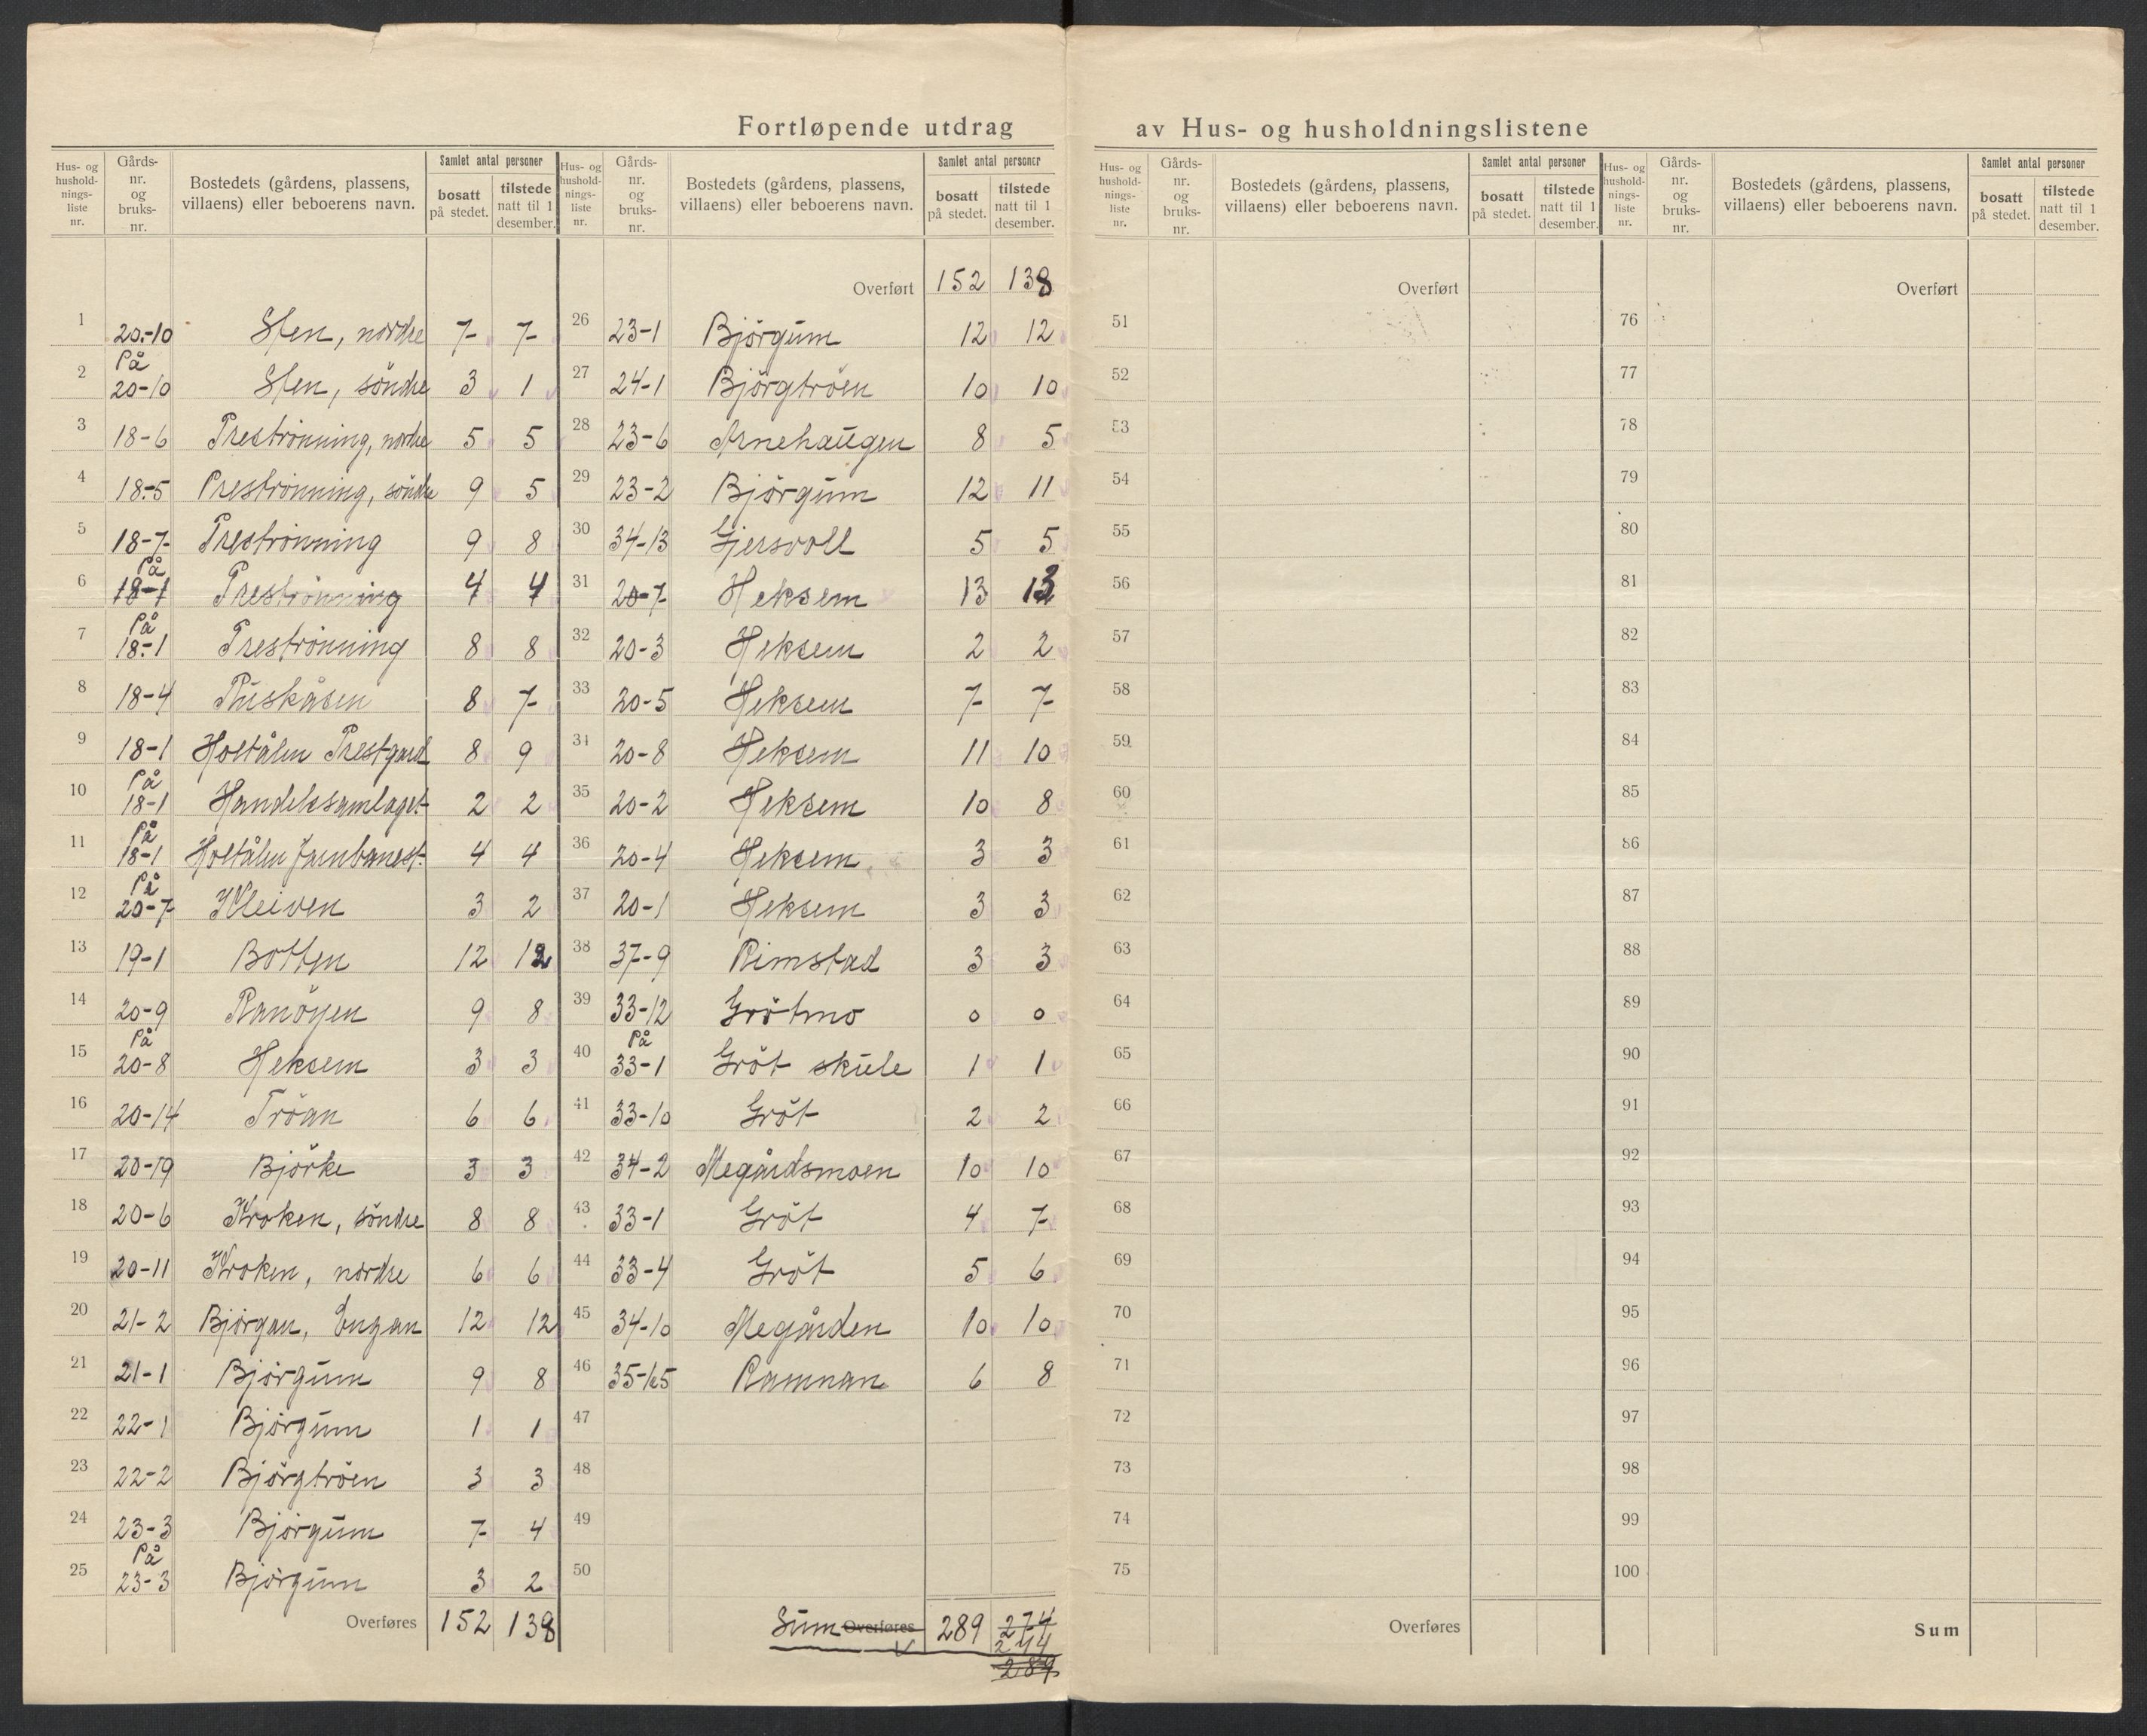 Fortløpende utdrag av Hus- og husholdningslistene
Hus- og husholdnings-liste nr. | Gårds-nr. og bruks-nr. | Bostedets (gårdens, plassens, villaens) eller beboerens navn. | Samlet antal personer | bosatt på stedet. | tilstede natt til 1 desember.
1 20-10 Sten, nordre 7 7
2 På 20-10 Sten, söndre 3 1
3 18-6 Preströnning, nordre 5 5
4 18-5 Preströnning, söndre 9 5
5 18-7 Preströnning 9 8
6 På 18-1 Preströnning 4 4
7 På 18-1 Preströnning 8 8
8 18-4 Puskåsen 8 7
9 18-1 Holtålen Prestgard 8 9
10 På 18-1 Handelssamlaget 2 2
11 På 18-1 Holtålen Jarnbanest. 4 4
12 På 20-7 Kleiven 3 2
13 19-1 Botten 12 12
14 20-9 Ranöyen 9 8
15 På 20-8 Heksem 3 3
16 20-14 Tröan 6 6
17 20-19 Björke 3 3
18 20-6 Kroken, söndre 8 8
19 20-11 Kroken, nordre 6 6
20 21-2 Björgan, Engan 12 12
21 21-1 Björgum 9 8
22 22-1 Björgum 1 1
23 22-2 Björgtröen 3 3
24 23-3 Björgum 7 4
25 På 23-3 Björgum 3 2
Overføres 152 138
Hus- og husholdnings-liste nr. | Gårds-nr. og bruks-nr. | Bostedets (gårdens, plassens, villaens) eller beboerens navn. | Samlet antal personer | bosatt på stedet. | tilstede natt til 1 desember.
Overført 152 138
26 23-1 Björgum 12 12
27 24-1 Björgtröen 10 10
28 23-6 Arnehaugen 8 5
29 23-2 Björgum 12 11
30 34-13 Gjersvoll 5 5
31 20-7 Heksem 13 13
32 20-3 Heksem 2 2
33 20-5 Heksem 7 7
34 20-8 Heksem 11 10
35 20-2 Heksem 10 8
36 20-4 Heksem 3 3
37 20-1 Heksem 3 3
38 37-9 Rimstad 3 3
39 33-12 Grötmo 0 0
40 På 33-1 Gröt skule 1 1
41 33-10 Gröt 2 2
42 34-2 Megårdsmoen 10 10
43 33-1 Gröt 4 7
44 33-4 Gröt 5 6
45 34-10 Megården 10 10
46 Ramnan 6 8
47
48
49
50
Sum Overføres 289 274
289
Hus- og husholdnings-liste nr. | Gårds-nr. og bruks-nr. | Bostedets (gårdens, plassens, villaens) eller beboerens navn. | Samlet antal personer | bosatt på stedet. | tilstede natt til 1 desember.
Overført
51
52
53
54
55
56
57
58
59
60
61
62
63
64
65
66
67
68
69
70
71
72
73
74
75
Overføres
Hus- og husholdnings-liste nr. | Gårds-nr. og bruks-nr. | Bostedets (gårdens, plassens, villaens) eller beboerens navn. | Samlet antal personer | bosatt på stedet. | tilstede natt til 1 desember.
Overført
76
77
78
79
80
81
82
83
84
85
86
87
88
89
90
91
92
93
94
95
96
97
98
99
100
Sum